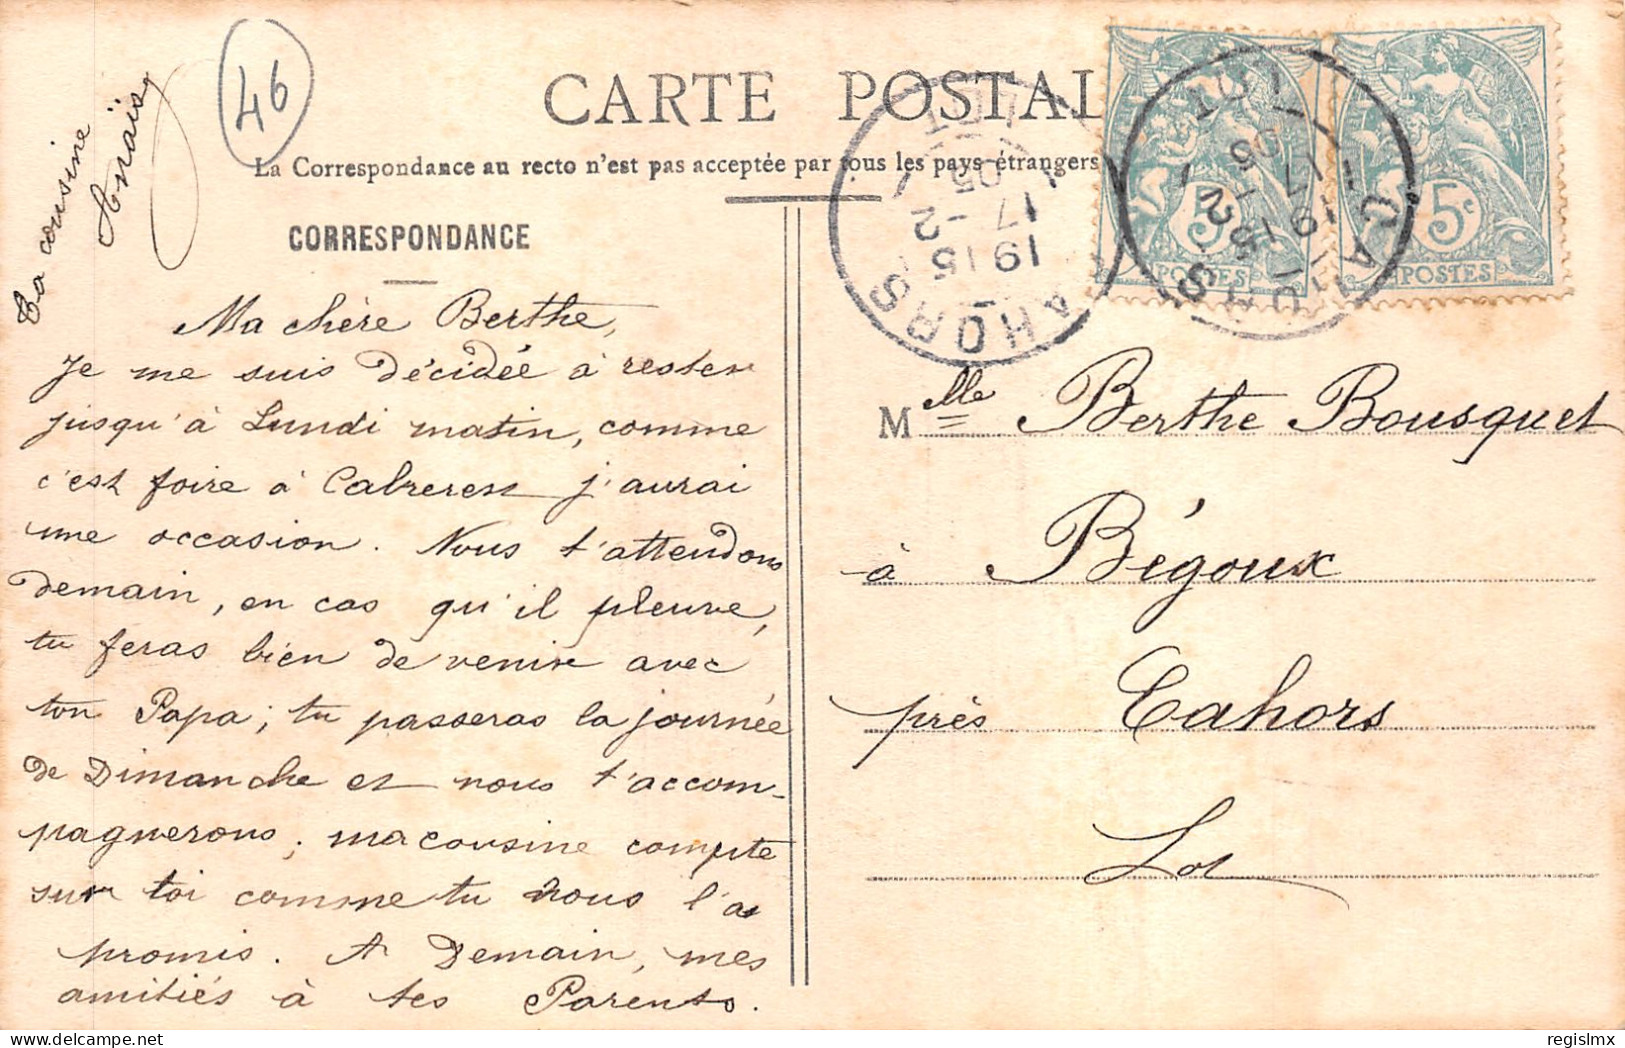 46
CARTE POSTAL
La Correspondance au recto n'est pas acceptée par tous les pays étrangers
CORRESPONDANCE
Ma chère Berthe,
Je me suis décidée à rester
jusqu'à Lundi matin, comme
c'est foire à Cabrerets j'aurai
une occasion. Nous t'attendons
demain, en cas qu'il pleuve,
tu feras bien de venir avec
ton Papa; tu passeras la journée
de Dimanche et nous t'accom-
pagnerons; ma cousine compte
sur toi comme tu nous l'as
promis. A Demain, mes
amitiés à tes Parents.
Ta cousine
Anaïs
CAHORS
LOT
1915
17-2
05
5c
POSTES
5
POSTES
CAHORS
LOT
1915
17-2
05
Mlle Berthe Bousquet
à Bégoux
près Cahors
Lot
regislmx